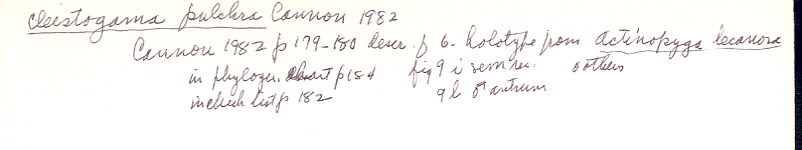 Cleistogamia pulchra Cannon 1982
Cannon 1982 p 179-180 descr. p 6. holotype from Actinopyga lecanora
in phylogen. chart p 184 fig 9 i sem. rec. & others
in check list p 182 9 l ♂ antrum